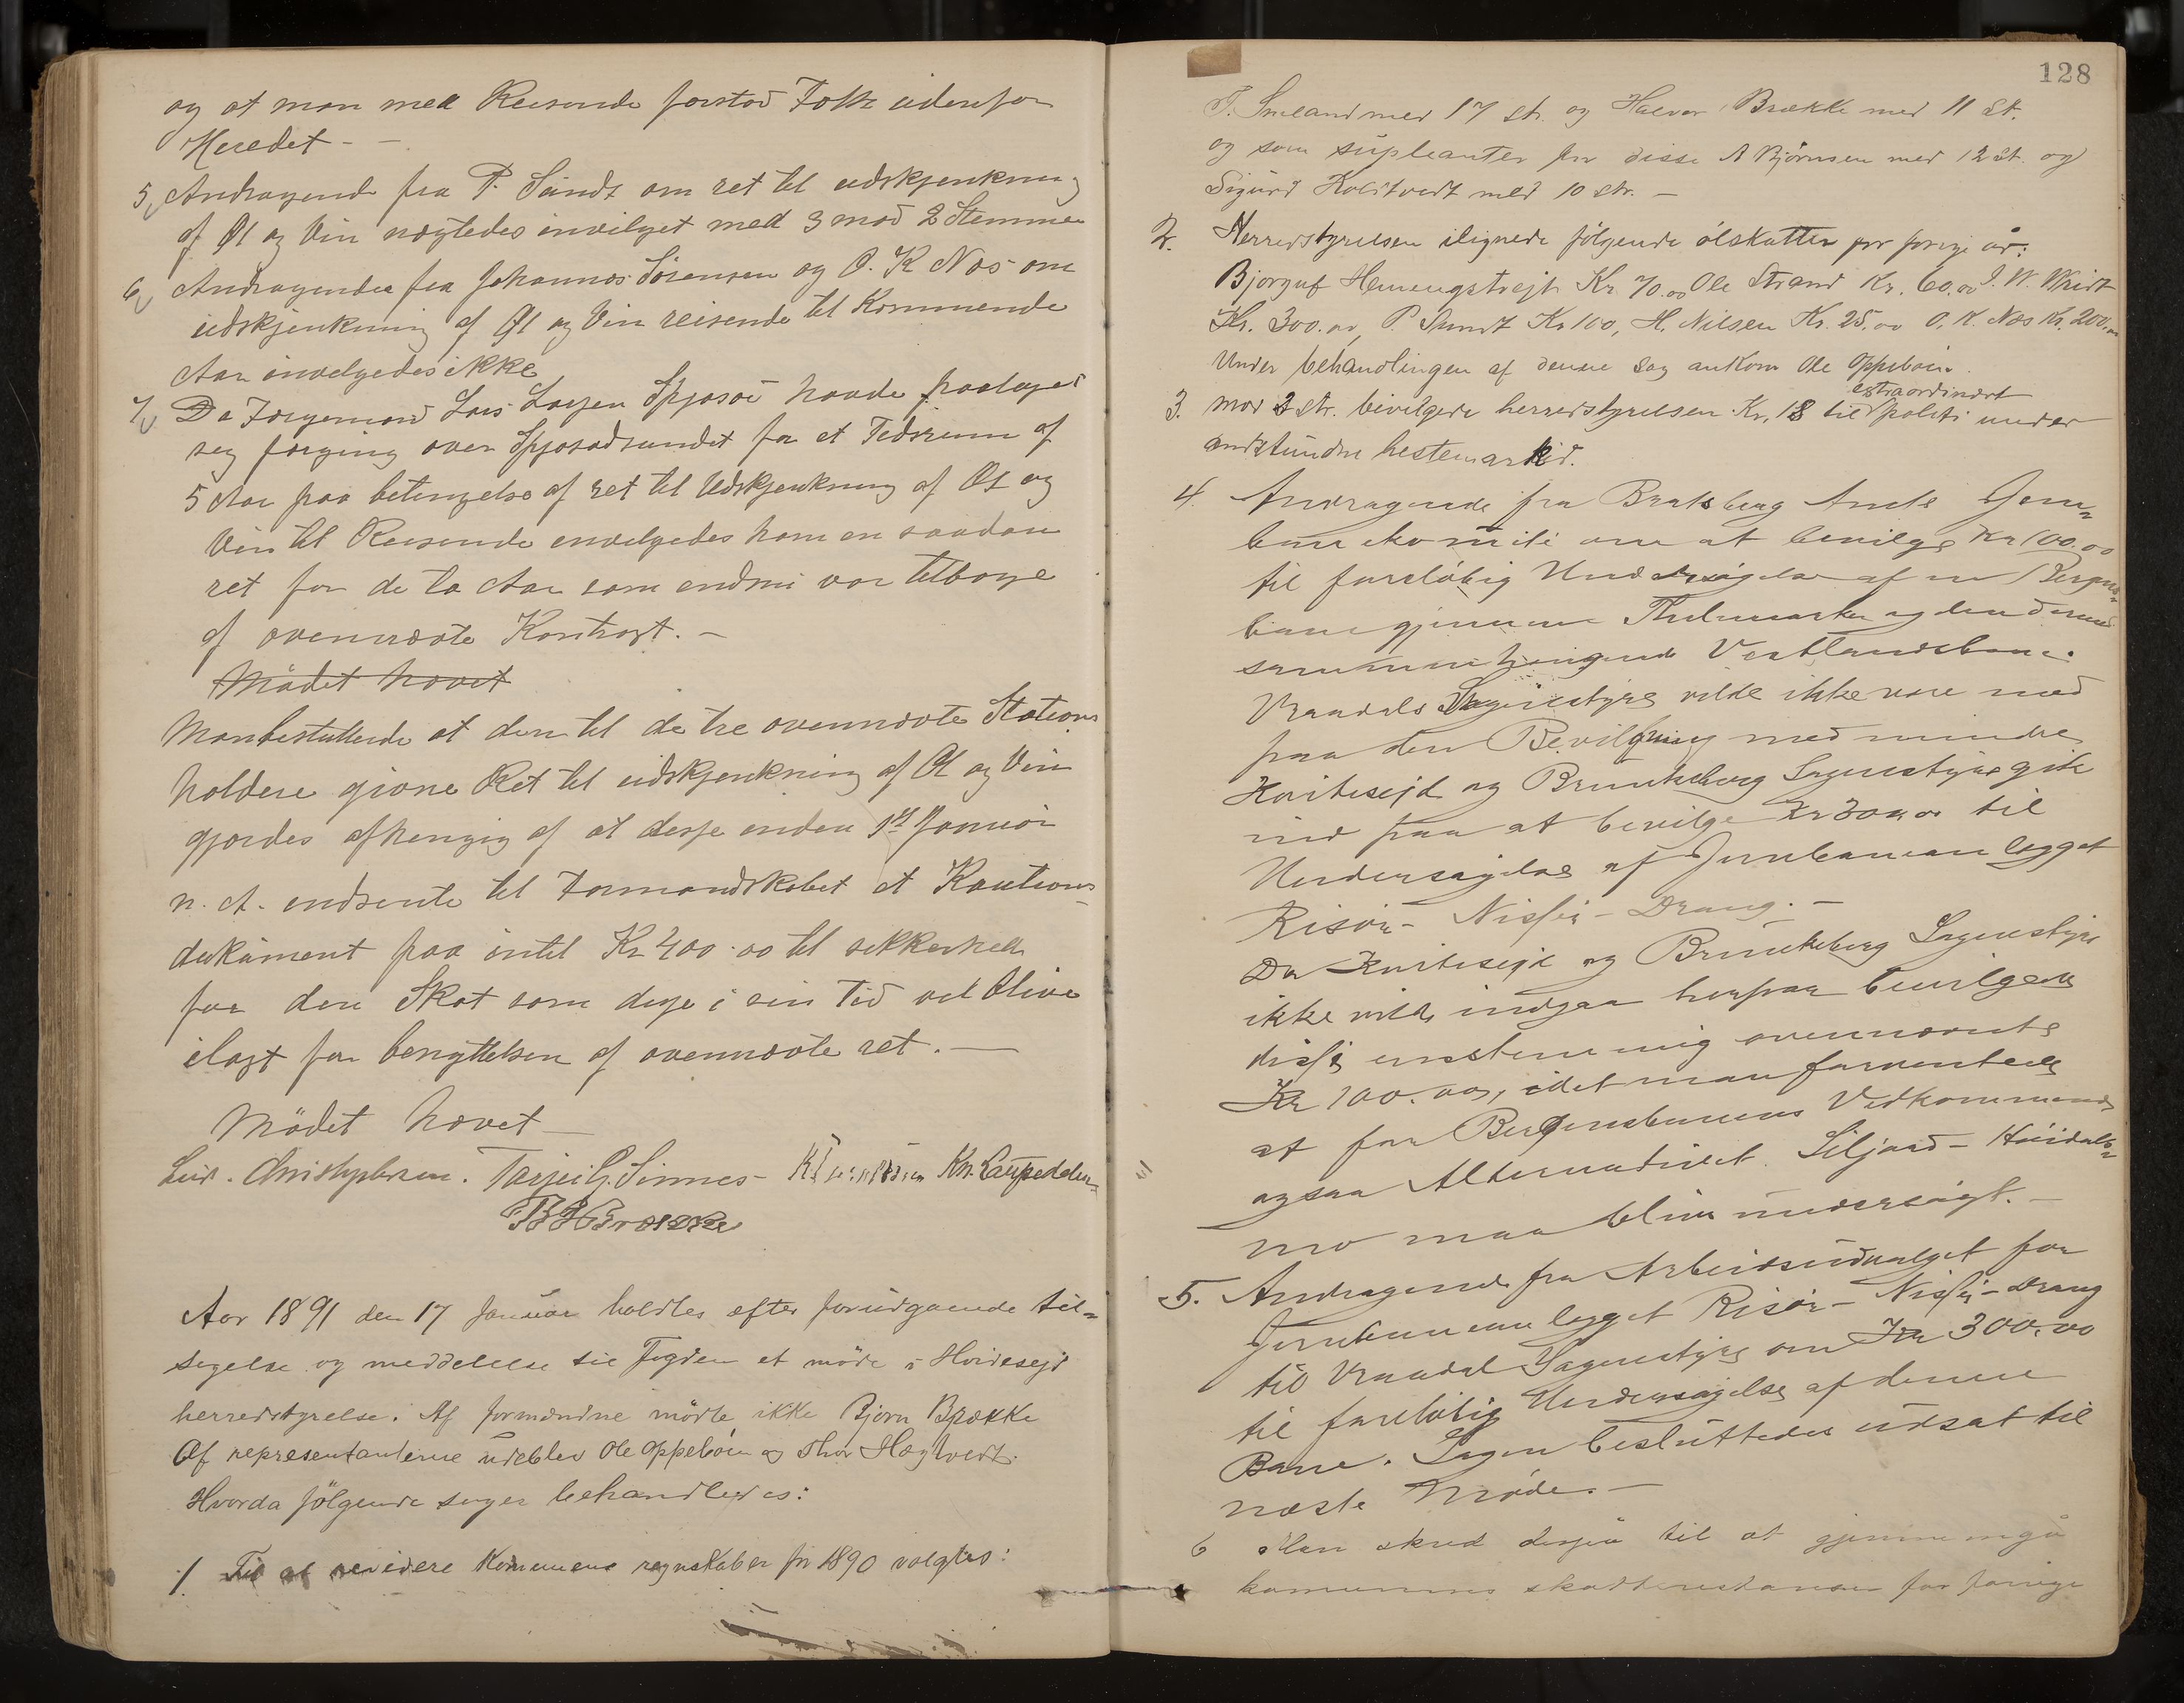 og at man med Reisende forstod Folk udenfor
Heredet - -
5, Andragende fra P. Sundt om ret til udskjenkning
af Øl og Vin nægtedes invilget med 3 mod 2 Stemmer
6, Andragender fra Johannes Sörensen og O. K Næs om
udskjenkning af Øl og Vin reisende til Kommende
Aar invelgedes ikke
7, Da Færgemand Lars Larsen Spjosöd havde paataget
seg færging over Spjosodsundet for et Tidsrum af
5 Aar paa betingelse af ret til Udskjenkning af Øl og
Vin til Reisende envelgedes ham en saadan
ret for de to Aar som endnu var tilbage
af ovennævte Kontragt. -
Mödet hævet
Man besluttede at den til de tre ovennævte Stations
holdere givne Ret til udskjenkning af Øl og Vin
gjordes afhengig af at desse inden 1st Januar
n. A. endsente til Formandskabet et Kautions-
dokument paa intil Kr 400.00 til sekkerhed
for den Skat som dege i sin Tid vel blive
ilagt for benyttelsen af ovennævte ret. -
Mödet hævet -
Leur. Christophersen. Tarjei G. Sinnes - Kn. Laupedalen
B H Brække
Aar 1891 den 17 Januar holdtes efter forudgaaende til=
sigelse og meddelelse til Fogden et möde i Hvidesejd
herredstyrelse. Af formændne mödte ikke Bjorn Brække
Af representanterne udeblev Ole Oppeboen og Thor Hægtvedt.
Hvorda fölgende sager behandledes:
1. Til at revidere Komunens regnskaber for 1890 valgtes:
128
T. Smeland med 17 st. og Halvor Brække med 11 st.
og som supleanter for disse A Björnsen med 12 st. og
Sigurd Kolstvedt med 10 str. -
2. Herredstyrelsen ilignede fölgende ölskatter for forrige år:
Bjorguf Hemmgstvejt Kr. 70.00 Ole Strand Kr. 60.00
Kr. 300.00, P. Sundt Kr 100, H. Nilsen Kr. 25.00 O. K. Næs Kr. 200.00
Under behandlingen af denne sag ankom Ole Oppeboen.
3. mod 2 str. bevilgede herredstyrelsen Kr. 18 til extraordinært politi under
hestemarked.
4. Andragende fra Bratsberg Amts Jern=
bane Komite om at bevilge Kr 100.00
til foreløbig Undersøgelse af en Bergens=
bane gjennem Thelemarken og den dermed
sammenhængende Vestlandsbane.
Vraadals Sognestyre vilde ikke være med
paa den Bevilgning med mindre
Hvitesejd og Brunkeberg Sognestyre gik
ind paa at bevilge Kr 300.00 til
Undersøgelse af Jernbaneanlægget
Risör - Nisser - Drang. -
Da Hvitesejd og Brunkeberg Sognestyre
ikke vilde indgaa herpaa bevilgede
disse enstemmig ovennævnte
Kr 100.00, idet man forventede
at for Bergensbanens Vedkommende
ogsaa Alternativet Siljord - Hvidals=
mo maa blive undersøgt. -
5. Andragende fra Arbeidsudvalget for
Jernbaneanlegget Risör - Nisser - Drang
til Vraadal Sognestyre om Kr 300.00
til foreløbig Undersøgelse af denne
Bane. Sagen besluttedes udsat til
næste Möde. -
6 Man skred derpaa til at gjennemgå
kommunens skatterestancer for forrige